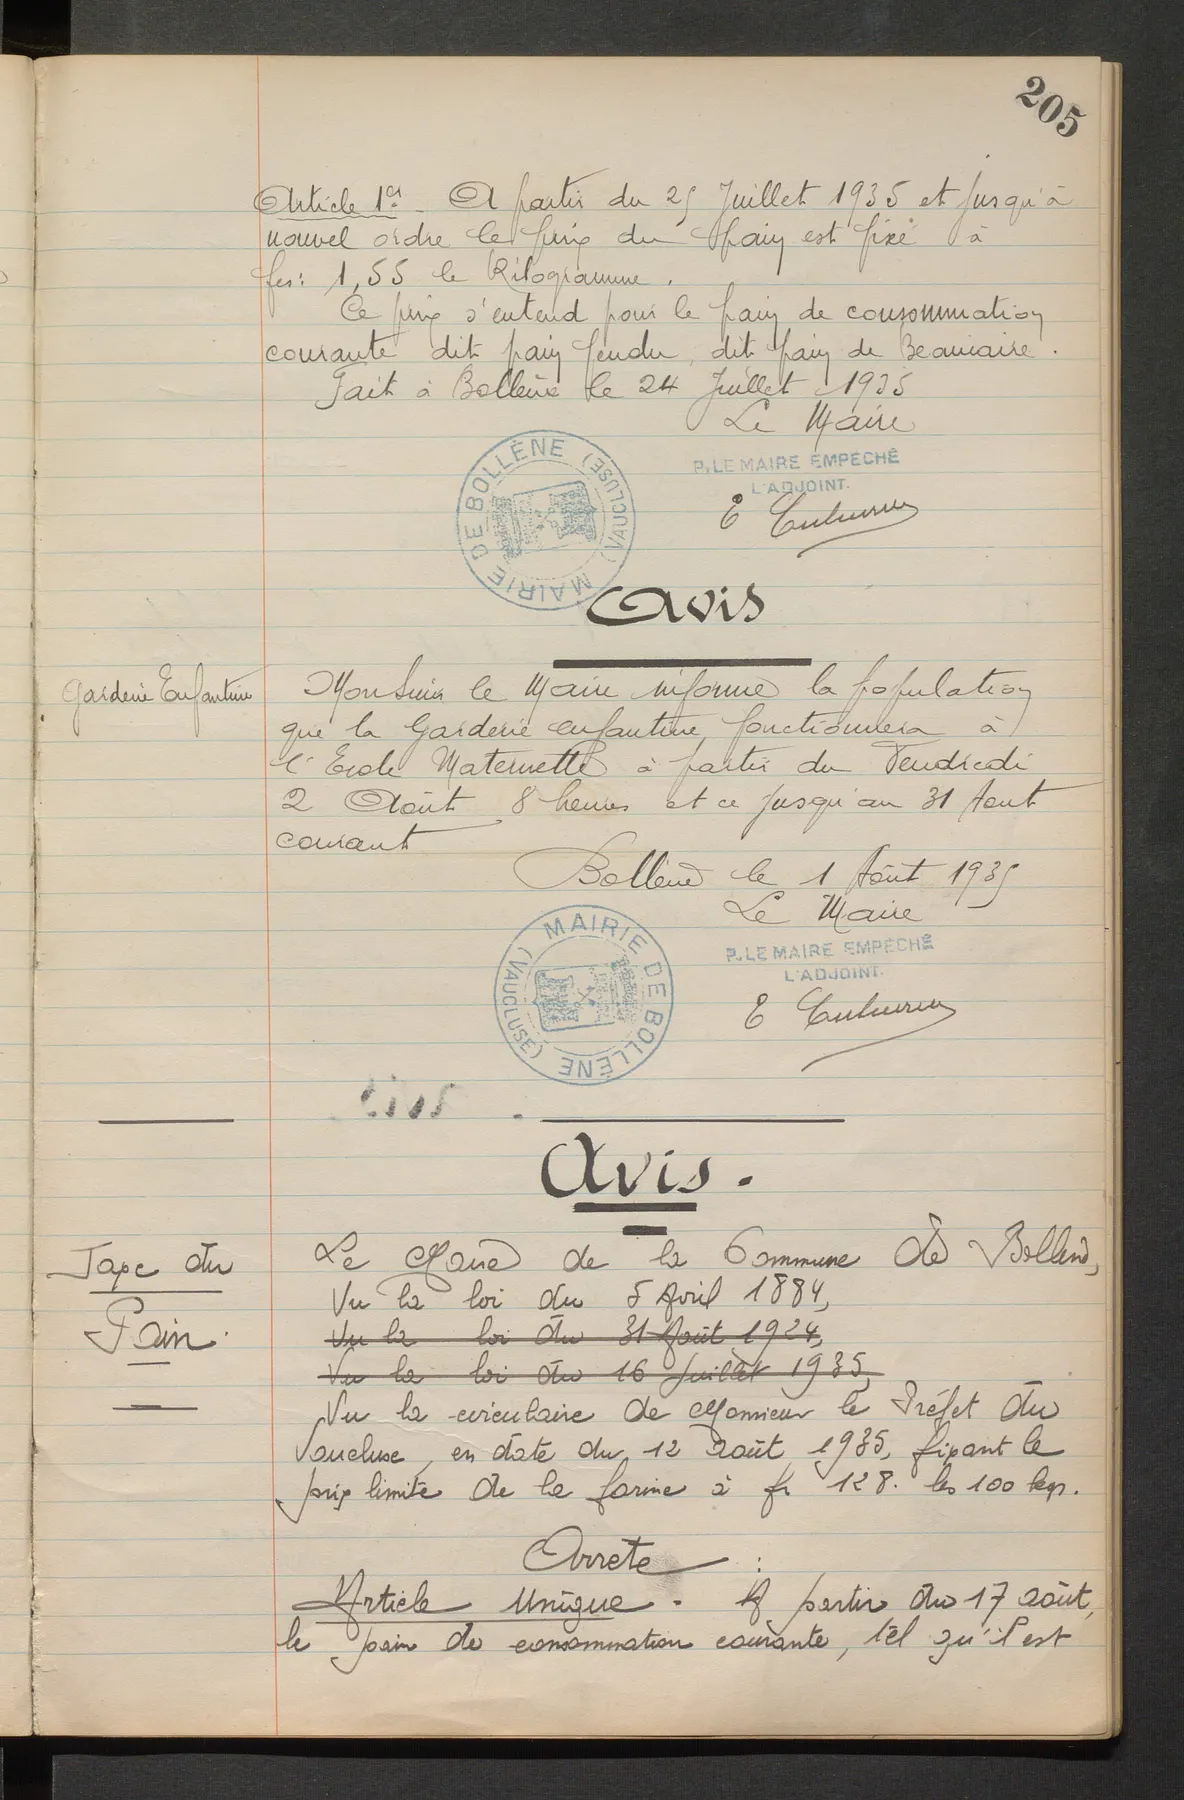 205
Article 1er. A partir du 25 Juillet 1935 et jusqu'à
nouvel ordre le prix du pain est fixé à
frs: 1,55 le Kilogramme.
Ce prix s'entend pour le pain de consommation
courante dit pain fendu, dit pain de Beaucaire.
Fait à Bollène le 24 Juillet 1935
Le Maire
P. LE MAIRE EMPÊCHÉ
L'ADJOINT.
MAIRIE DE BOLLÈNE (VAUCLUSE)
E
Avis
Garderie Enfantine
Monsieur le Maire informe la population
que la Garderie enfantine, fonctionnera à
l'Ecole Maternelle à partir du Vendredi
2 Août 8 heures et ce jusqu'au 31 Aout
courant
Bollène le 1 Août 1935
Le Maire
P. LE MAIRE EMPÊCHÉ
L'ADJOINT.
MAIRIE DE BOLLÈNE (VAUCLUSE)
E
Avis.
Taxe du
Pain.
Le Maire de la Commune de Bollène,
Vu la loi du 5 Avril 1884,
Vu la loi du 31 Août 1924,
Vu la loi du 16 Juillet 1935,
Vu la circulaire de Monsieur le Préfet du
Vaucluse, en date du 12 août 1935, fixant le
prix limite de la farine à fr 128. les 100 kgs.
Arrete :
Article Unique. A partir du 17 août,
le pain de consommation courante, tel qu'il est